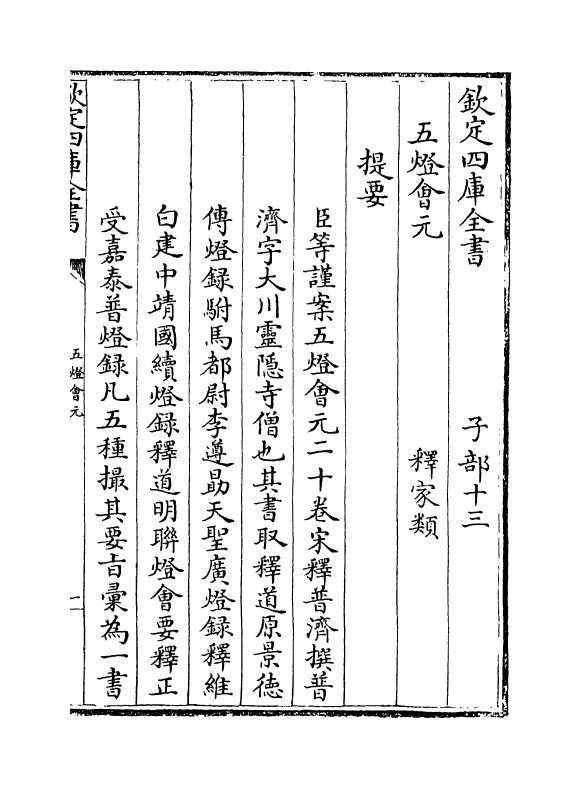 欽定四庫全書 子部十三
五燈會元 釋家類
提要
臣等謹案五燈會元二十卷宋釋普濟撰普
濟字大川靈隱寺僧也其書取釋道原景徳
傳燈録駙馬都尉李遵勗天聖廣燈録釋維
白建中靖國續燈録釋道明聯燈會要釋正
受嘉泰普燈録凡五種撮其要旨彙為一書
欽定四庫全書
五燈會元
一